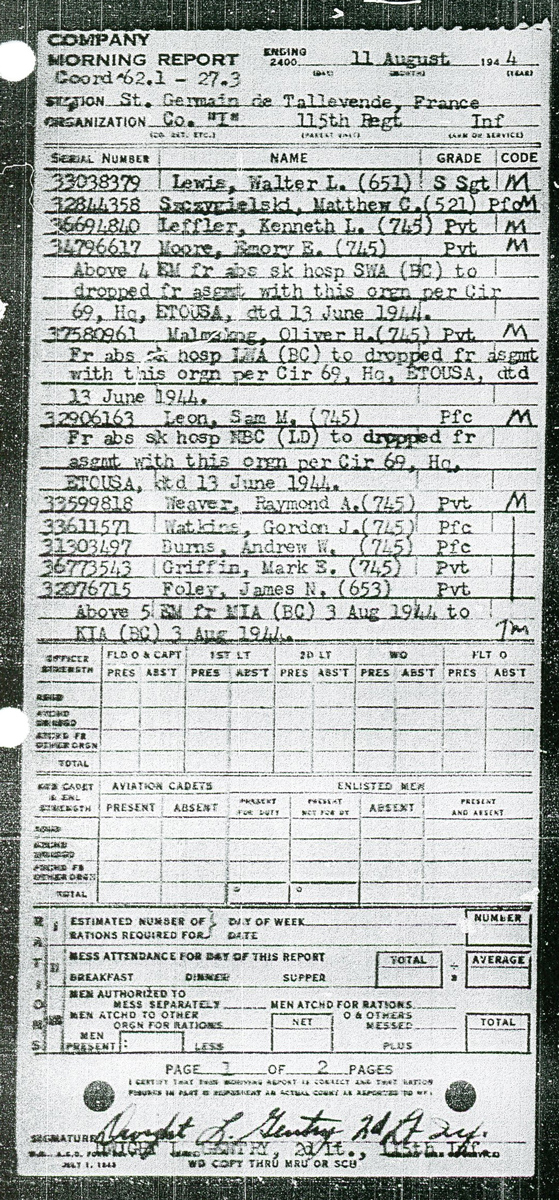 COMPANY
MORNING REPORT ENDING 2400 11 August 1944
(DAY) (MONTH) (YEAR)
Coord 62.1 - 27.3
STATION St. Germain de Tallevende, France
ORGANIZATION Co. "I" 115th Regt Inf
(CO. DET. ETC.) (PARENT UNIT) (ARM OR SERVICE)
SERIAL NUMBER NAME GRADE CODE
33038379 Lewis, Walter L. (651) S Sgt M
32844358 Szczygielski, Matthew C.(521) Pfc M
36694840 Leffler, Kenneth L. (745) Pvt M
34796617 Moore, Emory E. (745) Pvt M
Above 4 EM fr abs sk hosp SWA (BC) to
dropped fr asgmt with this orgn per Cir
69, Hq, ETOUSA, dtd 13 June 1944.
37580961 Oliver H.(745) Pvt M
Fr abs sk hosp LWA (BC) to dropped fr asgmt
with this orgn per Cir 69, Hq, ETOUSA, dtd
13 June 1944.
32906163 Leon, Sam M. (745) Pfc M
Fr abs sk hosp NBC (LD) to dropped fr
asgmt with this orgn per Cir 69, Hq,
ETOUSA, dtd 13 June 1944.
33599818 Weaver, Raymond A.(745) Pvt M
33611571 Watkins, Gordon J.(745) Pfc
31303497 Burns, Andrew W. (745) Pfc
36773543 Griffin, Mark E. (745) Pvt
32076715 Foley, James N. (653) Pvt
Above 5 EM fr MIA (BC) 3 Aug 1944 to
KIA (BC) 3 Aug 1944.
OFFICER STRENGTH FLD O & CAPT 1ST LT 2D LT WO FLT O
PRES ABS'T PRES ABS'T PRES ABS'T PRES ABS'T PRES ABS'T
ASGD
ATCHD UNASGD
ATCHD FR OTHER ORGN
TOTAL
AVN CADET & ENL STRENGTH AVIATION CADETS ENLISTED MEN
PRESENT ABSENT PRESENT FOR DUTY PRESENT NOT FOR DY ABSENT PRESENT AND ABSENT
ASGD
ATCHD UNASGD
ATCHD FR OTHER ORGN
TOTAL
RATIONS
I ESTIMATED NUMBER OF RATIONS REQUIRED FOR } DAY OF WEEK DATE NUMBER
II MESS ATTENDANCE FOR DAY OF THIS REPORT TOTAL ÷ AVERAGE
BREAKFAST DINNER SUPPER
MEN AUTHORIZED TO MESS SEPARATELY MEN ATCHD FOR RATIONS
MEN ATCHD TO OTHER ORGN FOR RATIONS NET O & OTHERS MESSED TOTAL
MEN PRESENT: LESS PLUS
PAGE 1 OF 2 PAGES
I CERTIFY THAT THIS MORNING REPORT IS CORRECT AND THAT RATION
FIGURES IN PART III REPRESENT AN ACTUAL COUNT AS REPORTED TO ME:
SIGNATURE Dwight L. Gentry 2d Lt Inf.
DWIGHT L. GENTRY, 2d Lt., 115th Inf.
W.D. A.G.O. FORM
JULY 1, 1943 WD COPY THRU MRU OR SCU